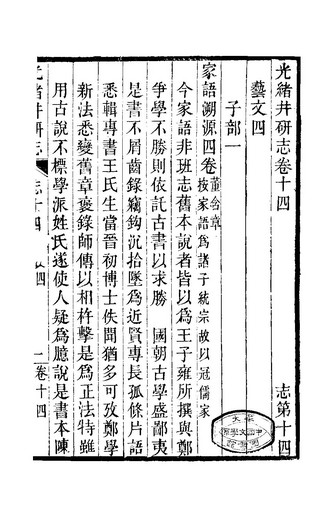 光緒井研志卷十四　志第十四
藝文四
子部一
家語溯源四卷　董含章　按家語爲諸子統宗故以冠儒家
今家語非班志舊本說者皆以爲王子雍所撰與鄭
爭學不勝則依託古書以求勝　國朝古學盛鄙夷
是書不屑齒錄竊鈎沉拾墜爲近賢專長孤條片語
悉輯專書王氏生當晉初博士佚聞猶多可攷鄭學
新法悉變舊章褒錄師傳以相杵擊是爲正法特雖
用古說不標學派姓氏遂使人疑爲臆說是書本陳
志十四　四
一　卷十四